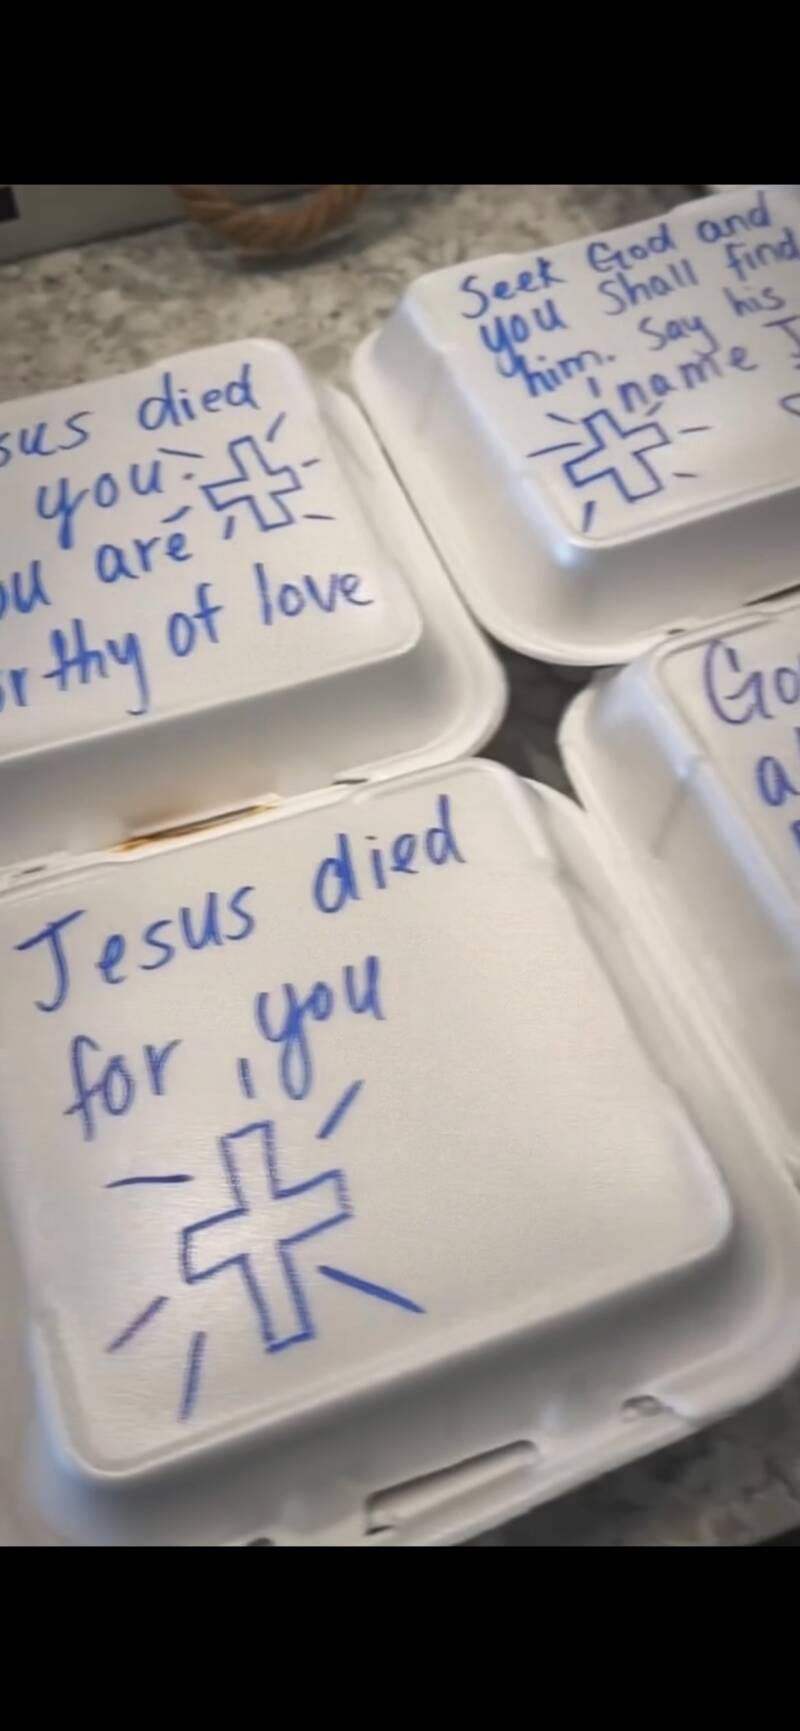 died
you.
are
of love
Seek God and
you shall find
him. Say his
name
Jesus died
for you